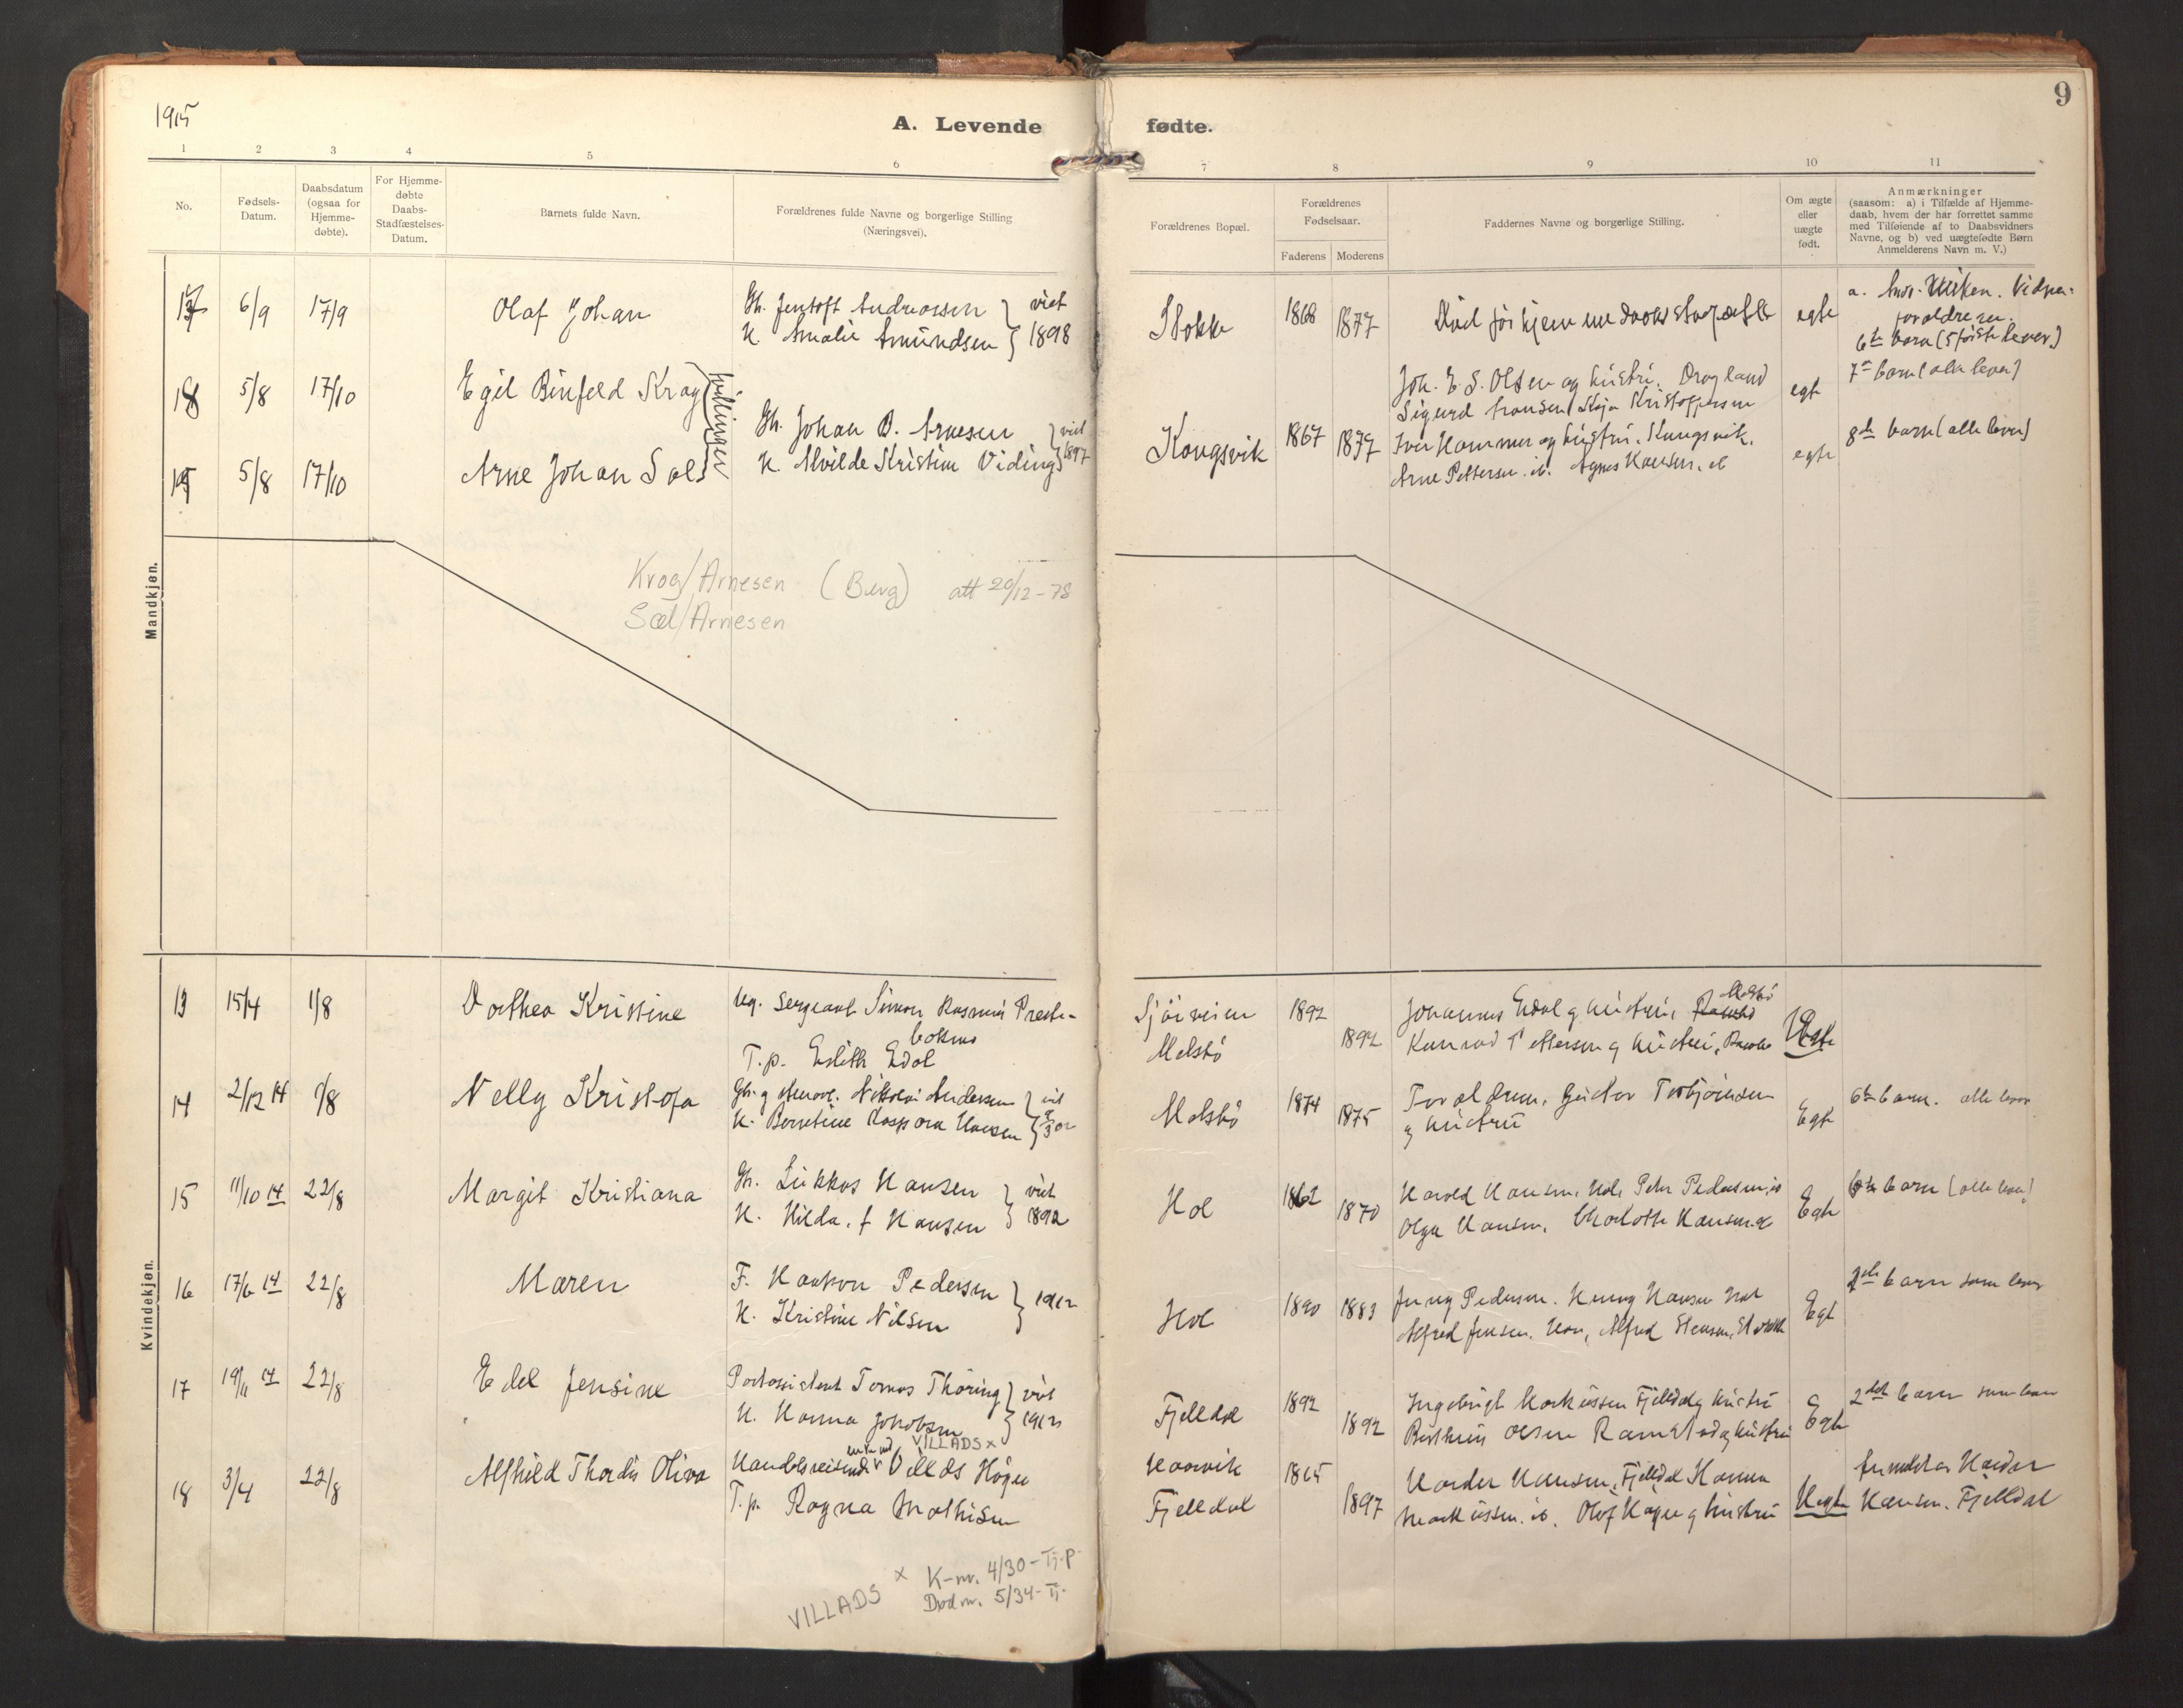 1915
A. Levende fødte.
9
1 2 3 4 5 6 7 8 9 10 11
No.
Fødsels-
Datum.
Daabsdatum
(ogsaa for
Hjemme-
døbte).
For Hjemme-
døbte
Daabs-
Stadfæstelses-
Datum.
Barnets fulde Navn.
Forældrenes fulde Navne og borgerlige Stilling
(Næringsvei).
Forældrenes Bopæl.
Forældrenes
Fødselsaar.
Faderens Moderens
Faddernes Navne og borgerlige Stilling.
Om ægte
eller
uægte
født.
Anmærkninger
(saasom: a) i Tilfælde af Hjemme-
daab, hvem der har forrettet samme
med Tilføiende af to Daabsvidners
Navne, og b) ved uægtefødte Børn
Anmelderens Navn m. V.)
Mandkjøn.
6/9 17/9 Olaf Johan
Gh. Jentoft Andreassen } viet
K. Amalie Amundsen } 1898
Stokke 1868 1877
Død før hjemmedaabsstadfæstelse
egte
forældrene.
6te barn (5 første lever.)
5/8 17/10 Egil Binfeld Krog
tvillinger
Gh. Johan B. Arnesen } viet
K. Alvilde Kristine Viding } 1897
5/8 17/10 Arne Johan Sæl
Kongsvik 1867 1879
Joh. E. S. Olsen og hustru. Dragland
Sigurd Fransen, Kaja Kristoffersen
Iver Hammer og hustru. Kongsvik.
Arne Pettersen. ib. Agnes Hansen. ib
egte
egte
7de barn (alle lever)
8de barn (alle lever)
Krog/Arnesen (Berg) att 20/12-78
Sæl/Arnesen
Kvindekjøn.
13 15/4 1/8 Dorthea Kristine
Ug. Sergeant Simon Rasmus Preste-
bakmo
T.p. Eslith Edal
Melsbø
1892 1892
Johannes Edal g hustru,
Konrad Pettersen g hustru,
Uegte
14 2/12 14 1/8 Nelly Kristofa
Nikolai Andersen } viet
K. Berntine Kaspara Hansen
Melsbø 1874 1875
Forældrene, Gustav Torbjørnsen
g hustru
Egte
6te barn. alle lever
15 11/10 14 22/8 Margit Kristiana
Gh. Lukkas Hansen } viet
K. Hilda, f Hansen } 1892
Hol 1862 1870
Harold Hansen, Hol, Peter Pedersen, ib
Olga Hansen, Charlotte Hansen. ib
Egte
barn (alle lever)
16 17/6 14 22/8 Maren
F. Haakon Pedersen } 1912
K. Kristine Nilsen
Hol 1890 1883
Jenny Pedersen. Henny Hansen Hol
Alfred Jensen. Hov, Alfred Stensen,
Egte
2det barn som lever
17 19/11 14 22/8 Edel Jensine
Postassistent Tomas Thøring } viet
K. Hanna Jakobsen } 1912
Fjelldal 1892 1892
Ingebrigt Markussen Fjelldal g hustru
Bertheus Olsen Ramstad g hustru
Egte
2det barn som lever
VILLADS x
18 3/4 22/8 Alfhild Thordis Oliva
enkemd
Handelsreisende Villads Høgu
T.p. Ragna Mathisen
Narvik
Fjelldal
1865 1897
Harder Hansen, Fjelldal Hanna
Markussen. ib. Olaf Høgu g hustru
Uegte
Anmeldt av Harder
Hansen. Fjelldal
VILLADS x K-nr. 4/30-Tj.p.
Død nr. 5/34-Tj.